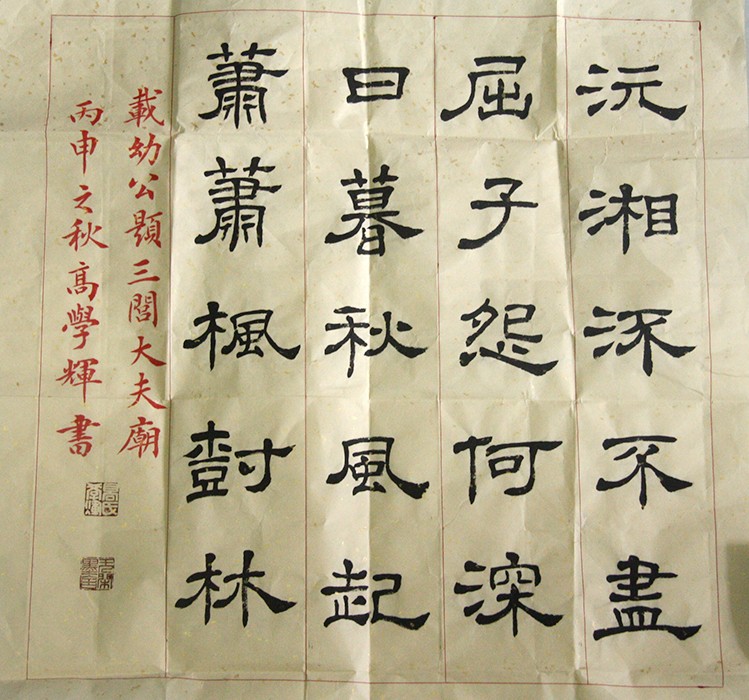 沅湘流不盡
屈子怨何深
日暮秋風起
蕭蕭楓樹林
載幼公題三閭大夫廟
丙申之秋高學輝書